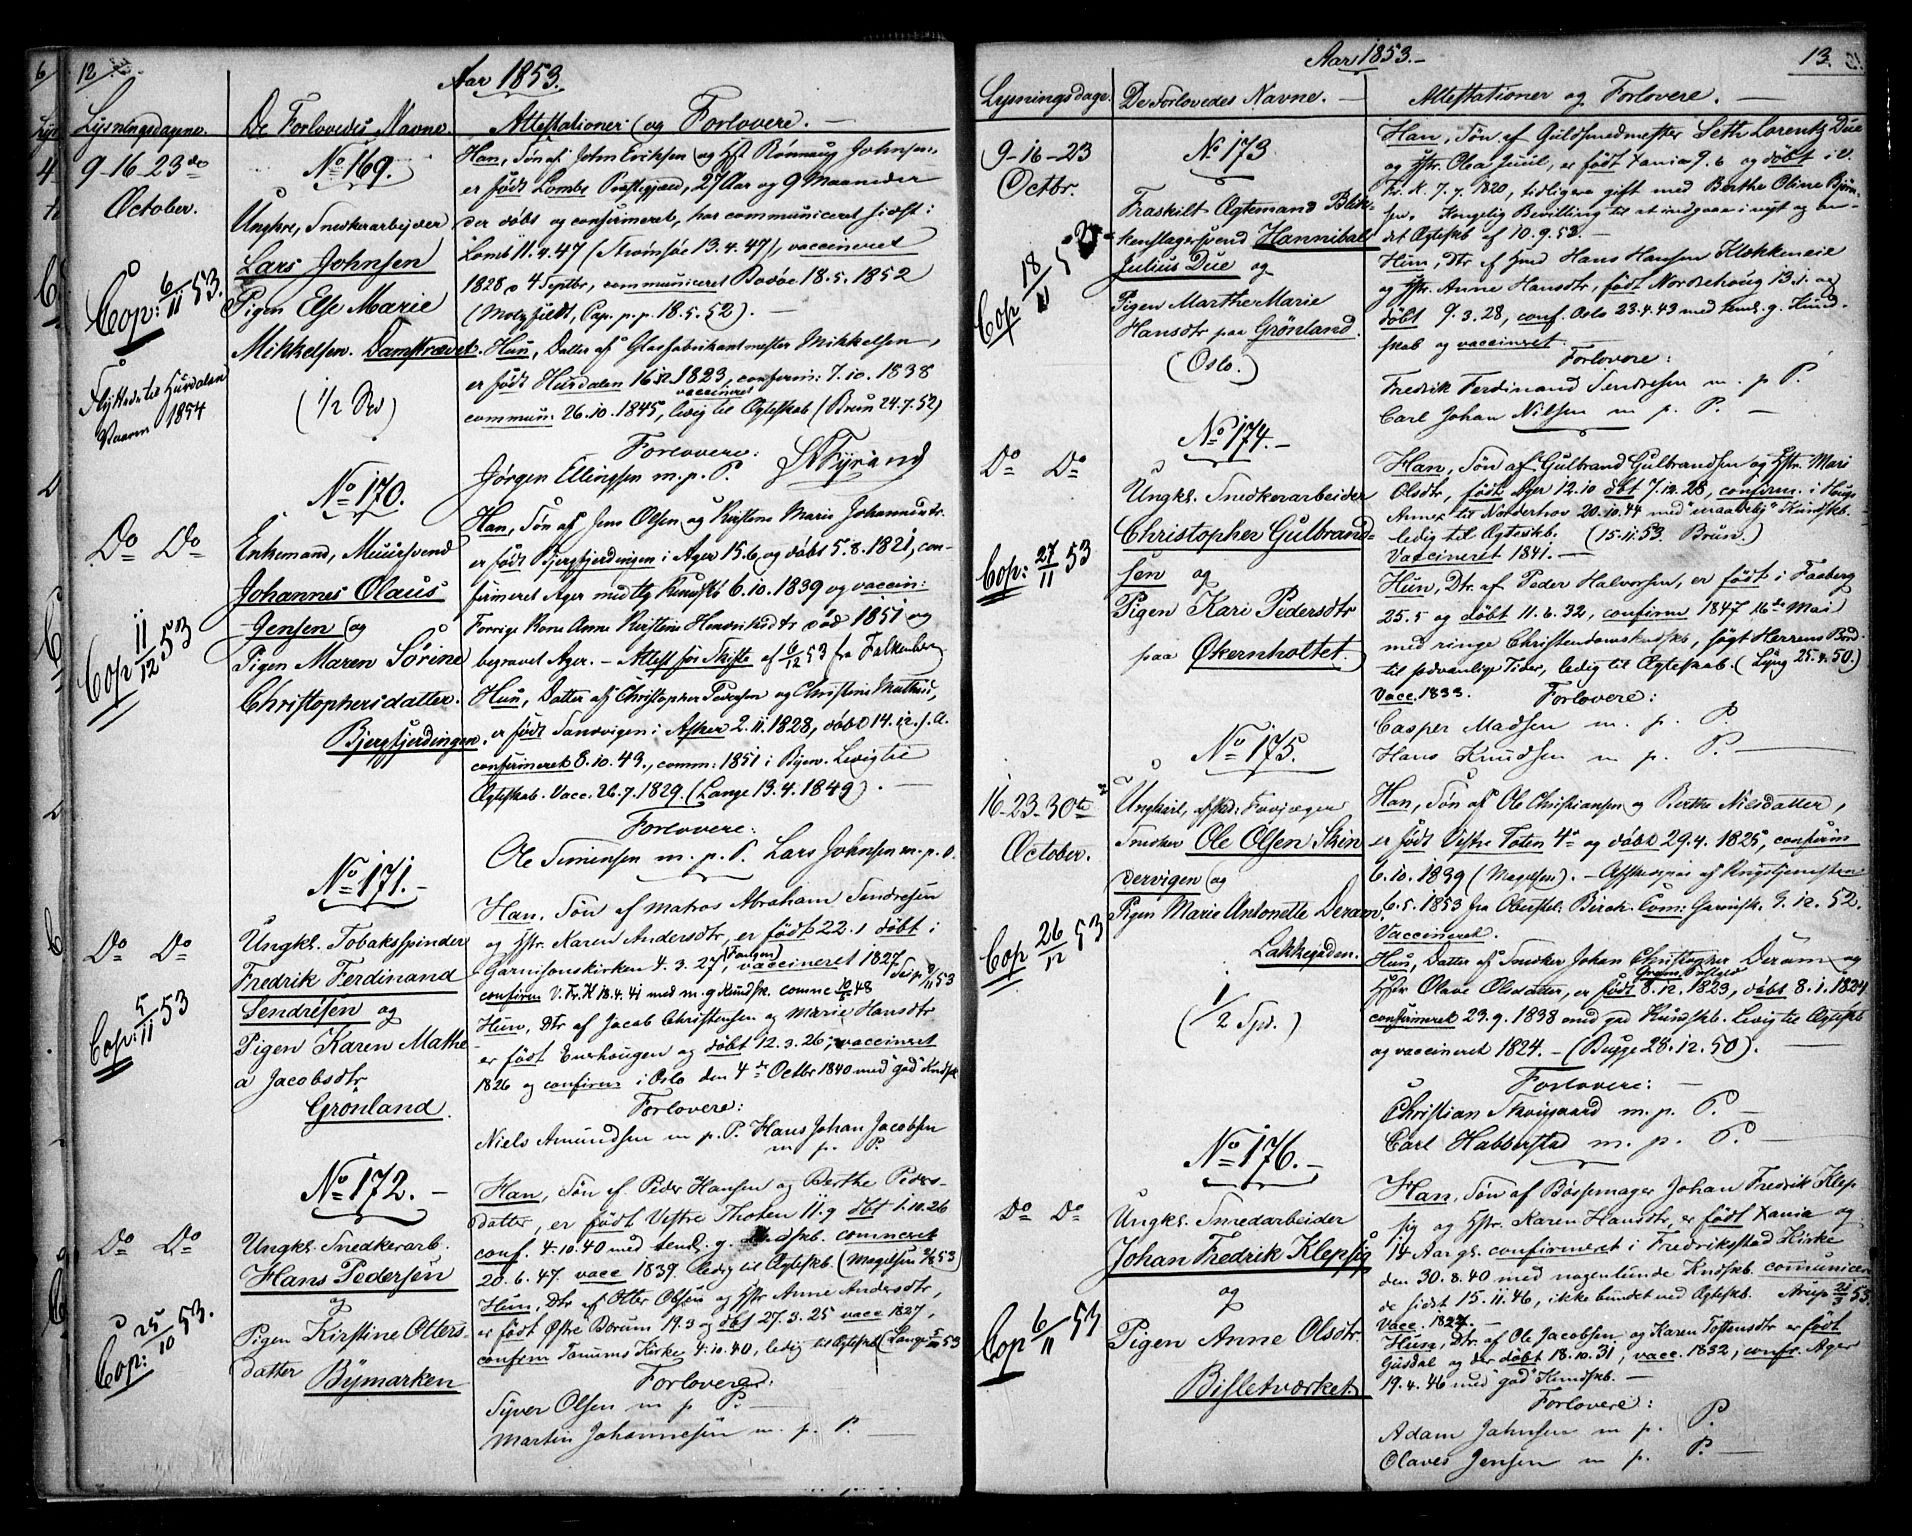 12
Aar 1853.
Lysningsdagene.
De Forlovedes Navne.
Attestationer og Forlovere. —
9-16-23de
October.
Cop: 6/11 53.
Flyttede til Hurdalen
Vaaren 1854
No 169.
Ungkre, Snedkerarbejder
Lars Johnsen
Pigen Else Marie
Mikkelsen. Damstrædet.
(1/2 Spd)
Han, Søn af John Eriksen og Hst Rønnaug Johnsen,
er født Lombs Præstegjæld, 27 Aar og 9 Maaneder
der døbt og confirmeret, har communiceret sidst i
Lomb 11.4.47 (Strømsøe 13.4.47), vaccineret
1828 4 Septbr, communiceret Bodøe 18.5.1852
(Moltzfeldt, Cap. p.p. 18.5.52). —
Hun, Datter af Glasfabrikantmester Mikkelsen,
er født Hurdalen 1823, confirm: 7.10.1838
vaccineret
commun: 26.10.1845, ledig til Ægteskab (Brun 24.7.52)
Forlovere:
Jørgen Ellingsen m.p.P.
Do Do
Cop 11/12 53
No 170.
Enkemand, Muursvend
Johannes Olaus
Jensen og
Pigen Maren Sørine
Christophersdatter.
Bjergfjerdingen.
Han, Søn af Jens Olsen og Kirstine Marie Johannesdtr.
er født Bjergfjerdingen i Ager 15.6 og døbt 5.8.1821, con-
firmeret Ager med tlg Kundsk 6.10.1839 og vaccin:
Forrige Kone Anne Kirstine Henriksdtr død 1851 og
begravet Ager. — Attest for Skifte af 6/12 53 fra Falkenberg
Hun, Datter af Christopher Pedersen og Christine
er født Sandvigen i Asker 2.11.1828, døbt 14.12. s.A.
confirmeret 8.10.43., comm: 1851 i Byen. Ledig til
Ægteskab. Vacc. 26.7.1829. (Lange 13.4.1849). —
Forlovere:
Ole Simensen m.p.P. Lars Johnsen m.p.P.
Do Do
Cop: 5/11 53
No 171. —
Ungks. Tobaksspinder
Fredrik Ferdinand
Sendresen og
Pigen Karen Mathe
a Jacobsdtr
Grønland.
Han, Søn af Matros Abraham Sendresen
og Hstr. Karen Andersdtr, er født 22.1 døbt i
Garnisonskirken 4.3.27, (Fangen) vaccineret 1827
confirm V. Fr. K 18.4.41 med m. g Kundsk. comnc 48
Hun, Dtr af Jacob Christensen og Marie Hansdtr
er født Enerhougen og døbt 12.3.26, vaccineret
1826 og confirm i Oslo den 4de Octbr 1840 med "god" Kndsk.
Forlovere:
Niels Amundsen m.p.P. Hans Johan Jacobsen
m. p. P.
Do Do
Cop: 25/10 53.
No 172. —
Ungks. Snedkerarb.
Hans Pedersen
og
Pigen Kirstine Otters-
datter Bymarken
Han, Søn af Peder Hansen og Berthe Peders-
datter, er født Vestre Thoten 11.9 dbt 1.10.26
conf. 4.10.40 med temd. g. comneret
20.6.47. vacc 1839. ledig til Ægteskb. (Magelsen 53)
Hun, Dtr af Otter Olsen og Hstr Anne Andersdtr,
er født Østre Bærum 19.3 og dbt 27.3.25 vacc 1827,
confirm Tanums Kirke 4.10.40, ledig til Ægteskab (Lange 53
Forlovere:
Syver Olsen m p P. —
Martin Johannesen m. p. P. —
Aar 1853. —
13.
Lysningsdage.
De Forlovedes Navne. —
Attestationer og Forlovere. —
9-16-23
Octbr.
Cop 18/11 53
No 173
Fraskilt Ægtemand Blik-
kenslagersvend Hannibal
Julius Due og
Pigen Marthe Marie
Hansdtr paa Grønland.
(Oslo.)
Han, Søn af Guldsmedmester Seth Lorentz Due
og Hstr. Olea Juul, er født Xania 9.6 og døbt i V.
Fr. K. 7.7.1820, tidligere gift med Berthe Oline Bjørn-
sen. Kongelig Bevilling til at indgaae i nyt og an-
det Ægteskb af 10.9.53. —
Hun, Dtr. af Gmd Hans Hansen Klokkereie
og Hstr. Anne Hansdtr, født Norderhoug 13.1. og
døbt 9.3.28, conf. Oslo 23.4.43 med temd. g. Kund-
skab og vaccineret.
Forlovere:
Fredrik Ferdinand Sendresen m. p P.
Carl Johan Nilsen m. p. P. —
Do Do
Cop: 27/11 53
No 174. —
Ungks. Snedkerarbeider
Christopher Gulbrand-
sen og
Pigen Kari Pedersdtr
paa Økernholtet.
Han, Søn af Gulbrand Gulbrandsen og Hstr. Mari
Olsdtr, født Ager 12.10 dbt 7.12.28, confirm. i Hougs
Annex til Norderhov 20.10.44 med "maadelig" Kundskb.
ledig til Ægteskb. (15.11.53. Brun).
Vaccineret 1841. —
Hun, Dtr. af Peder Halvorsen, er født i Faaberg
25.5 og døbt 11.6.32, confirm 1847 16de Mai
med ringe Christendomskndskb, søgt Herrens Bord
til sædvanlige Tider, ledig til Ægteskab. (Lyng 25.4.50.)
Vacc. 1833.
Forlovere:
Casper Madsen m. p. P.
Hans Knudsen m p. P. —
16-23-30te
October.
Cop 26/12 53
No 175.
Ungkarl, afskd: Fodjæger
Snedker Ole Olsen Skin
dervigen og
Pigen Marie Antonette Deram,
Lakkegaden.
(1/2 Spd.)
Han, Søn af Ole Christiansen og Berthe Nilsdatter,
er født Vestre Toten 4de og døbt 29.4.1825, confirm
6.10.1839 (Magelsen). — Afskedspas af Krigstjenesten
6.5.1853 fra Oberstl. Birch. Com: Garnisk. 9.12.52.
Vaccineret.
Hun, Datter af Snedker Johan Christopher Deram og
Hstr Olave Olsdatter, er født 8.12.1823, døbt 8.1.1824,
confirmeret 23.9.1838 med god Kundskb. Ledig til Ægteskb
og vaccineret 1824. — (Bugge 28.12.50).
Forlovere: —
Christian Skovgaard m. p. P. —
Carl Habberstad m. p. P. —
Do Do
Cop 6/11 53
No 176. —
Ungks. Smedarbeider
Johan Fredrik Klepsig
og
Pigen Anne Olsdtr.
Bisletværket.
Han, Søn af Bøssemager Johan Fredrik Klep
sig og Hstr. Karen Hansdtr, er født Xania og
14 Aar gl. confirmeret i Fredrikstad Kirke
den 30.8.40 med nogenlunde Kndskb. comunicer-
de sidst 15.11.46, ikke bundet ved Ægteskb. Arup 21/3 53.
Vacc. 1827.
Hun, Dtr. af Ole Jacobsen og Karen Tostensdtr er født
Gusdal og der døbt 18.10.31, vacc. 1832, confr. Ager
19.4.46 med god Kundskb. —
Forlovere:
Adam Jahnsen m p. P.
Olaves Jensen m p. P. —